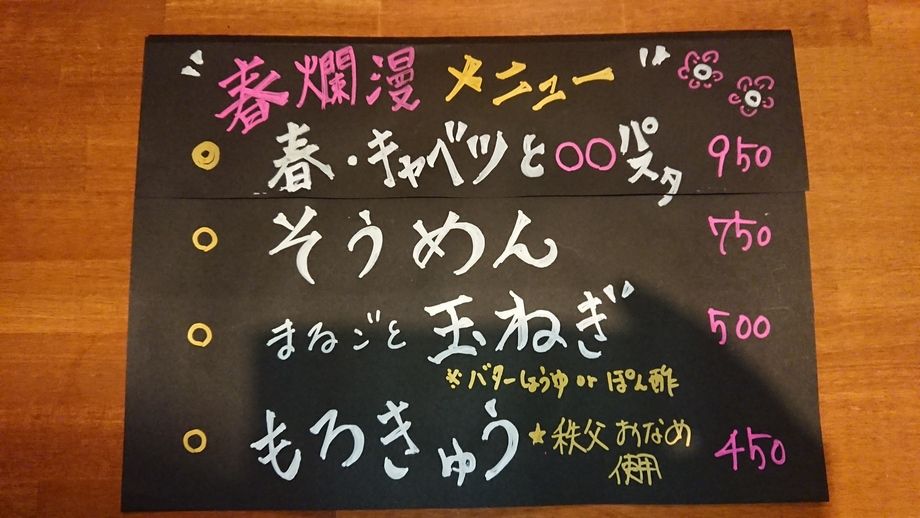 春爛漫 メニュー
春・キャベツと○○パスタ 950
そうめん 750
まるごと 玉ねぎ 500
※バターしょうゆ or ぽん酢
もろきゅう ★秩父おなめ使用 450